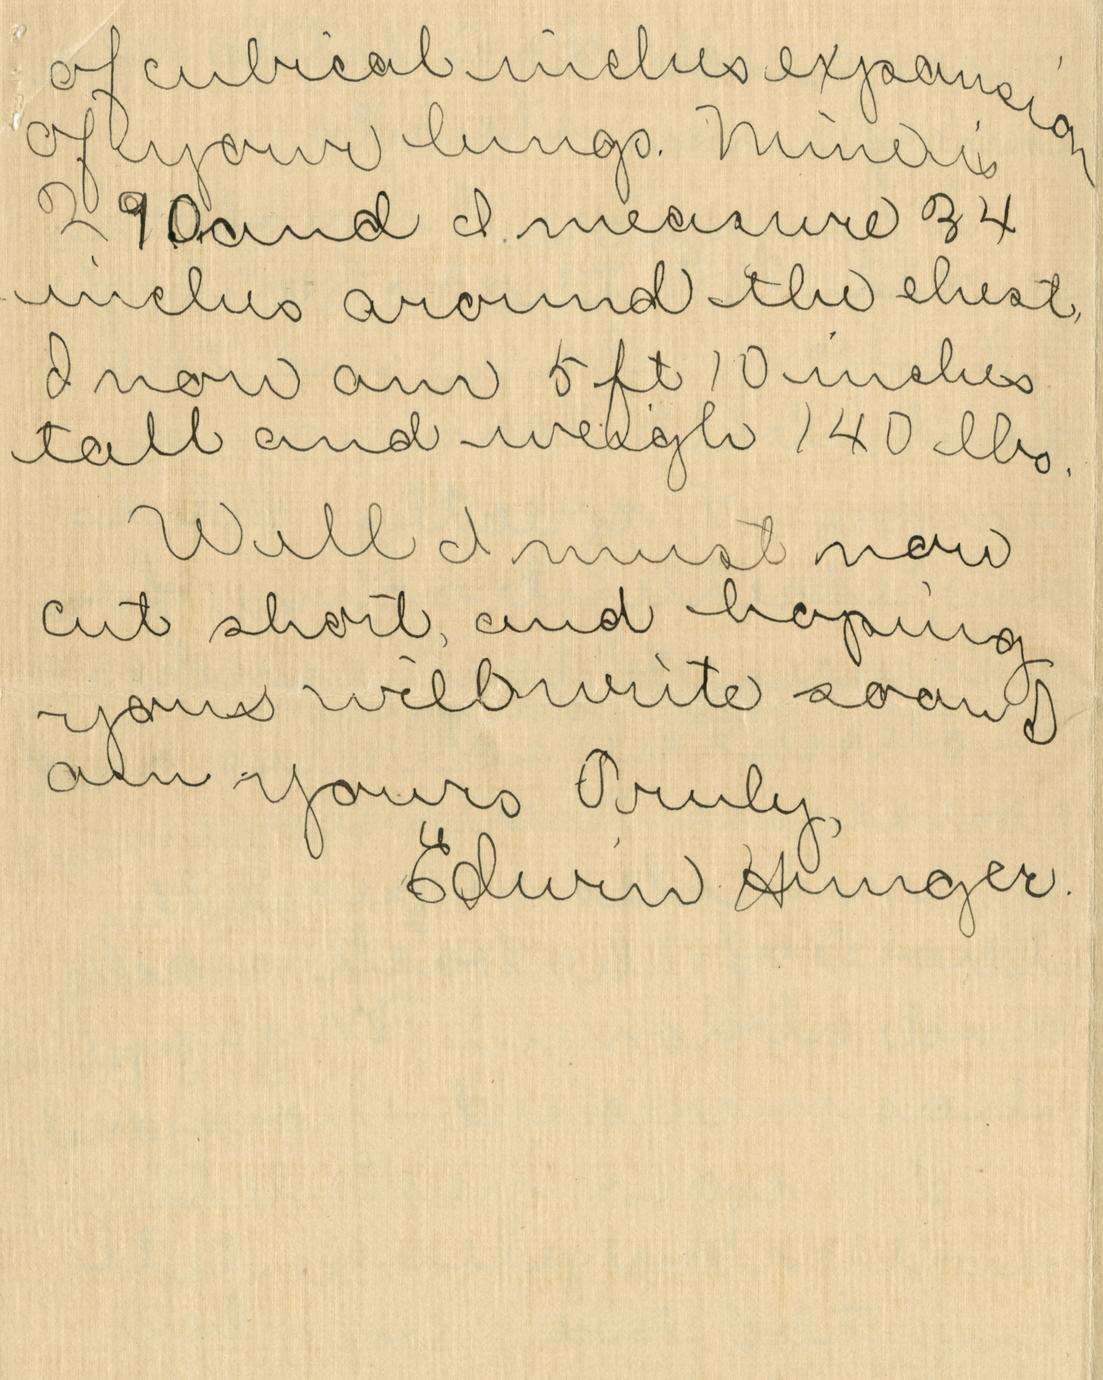 of cubical inches expansion
of your lungs. Mine is
290 and I measure 34
inches around the chest,
I now am 5 ft 10 inches
tall and weigh 140 lbs.
Well I must now
cut short, and hoping
you will write soon I
am yours Truly,
Edwin Hunger.